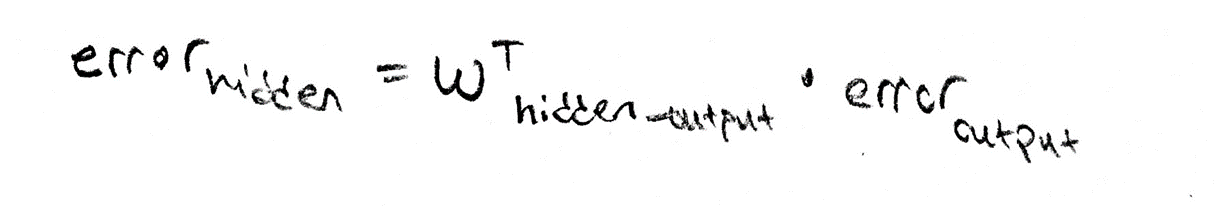 error_hidden = W^T_hidden_output · error_output